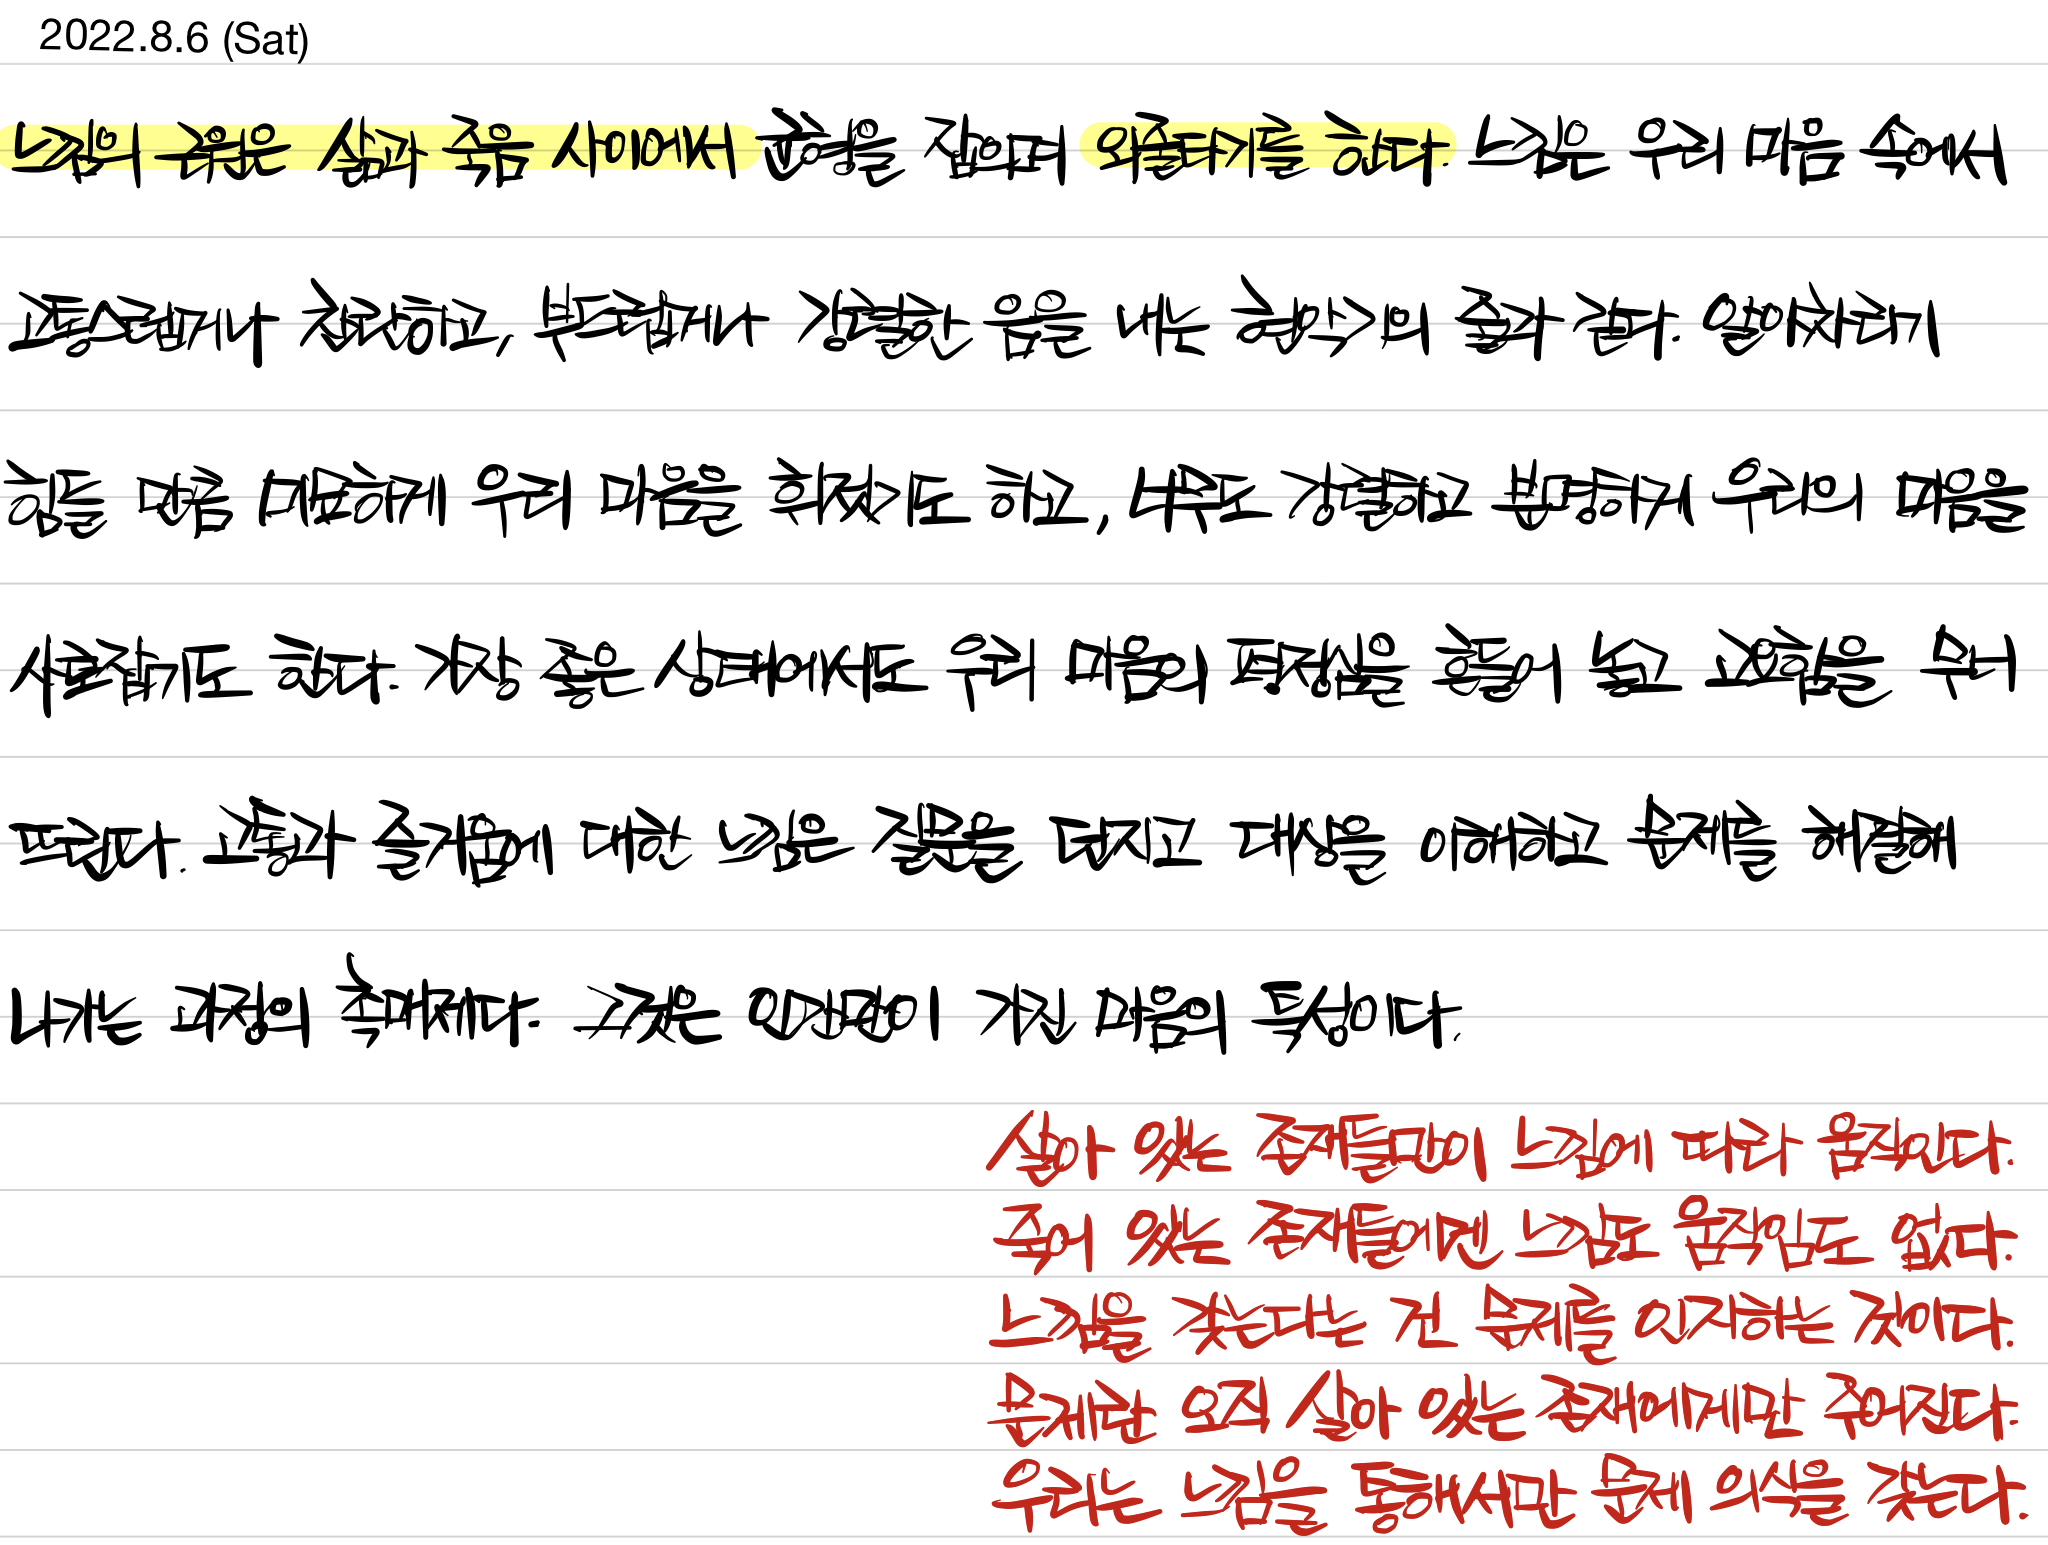 2022.8.6 (Sat)
느낌의 근원은 삶과 죽음 사이에서 균형을 잡으며 외줄타기를 한다. 느낌은 우리 마음 속에서
고통스럽거나 찬란하고, 부드럽거나 강렬한 음을 내는 현악기의 줄과 같다. 알아차리기
힘들 만큼 미묘하게 우리 마음을 휘젓기도 하고, 너무도 강렬하고 분명하게 우리의 마음을
사로잡기도 한다. 가장 좋은 상태에서도 우리 마음의 평정심을 흔들어 놓고 고요함을 무너
뜨린다. 고통과 즐거움에 대한 느낌은 질문을 던지고 대상을 이해하고 문제를 해결해
나가는 과정의 촉매제다. 그것은 인간만이 가진 마음의 특성이다.
살아 있는 존재들만이 느낌에 따라 움직인다.
죽어 있는 존재들에겐 느낌도 움직임도 없다.
느낌을 갖는다는 건 문제를 인지하는 것이다.
문제란 오직 살아 있는 존재에게만 주어진다.
우리는 느낌을 통해서만 문제 의식을 갖는다.